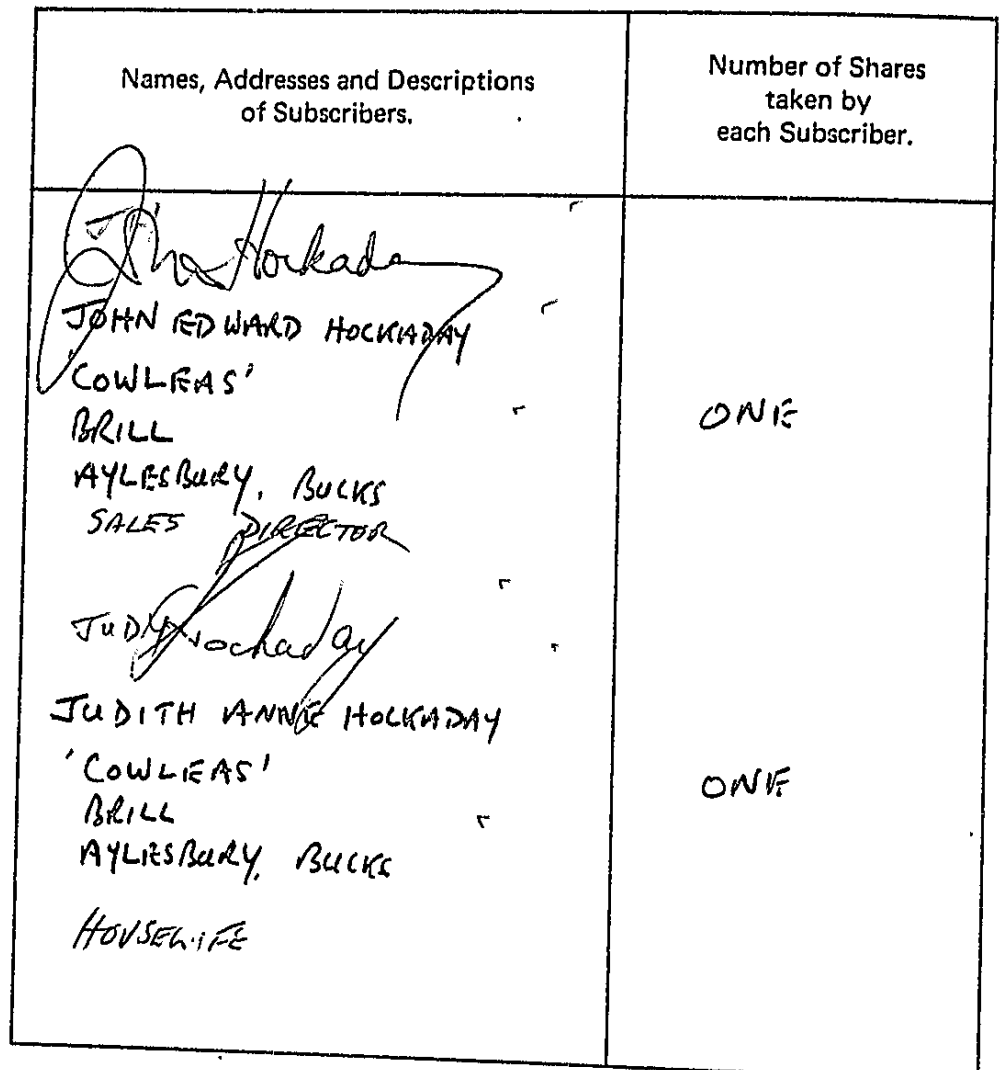 Names, Addresses and Descriptions
of Subscribers.
Number of Shares
taken by
each Subscriber.
John Hockaday
JOHN EDWARD HOCKADAY
'COWLEAS'
BRILL
AYLESBURY, BUCKS
SALES DIRECTOR
ONE
Judy Hockaday
JUDITH ANNE HOCKADAY
'COWLEAS'
BRILL
AYLESBURY, BUCKS
HOUSEWIFE
ONE